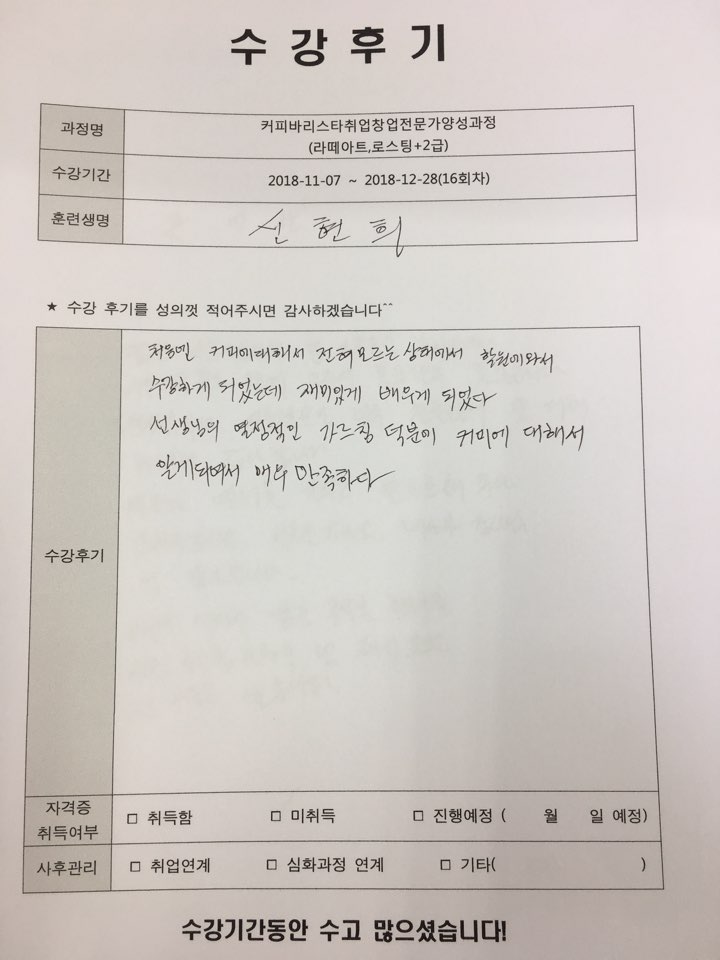 수 강 후 기
과정명
커피바리스타취업창업전문가양성과정
(라떼아트,로스팅+2급)
수강기간
2018-11-07 ~ 2018-12-28(16회차)
훈련생명
신 현 희
★ 수강 후기를 성의껏 적어주시면 감사하겠습니다^^
처음엔 커피에대해서 전혀모르는상태에서 학원에와서
수강하게 되었는데 재미있게 배우게 되었다
선생님의 열정적인 가르침 덕분에 커피에 대해서
알게되어서 매우 만족하다
수강후기
자격증
취득여부
□ 취득함 □ 미취득 □ 진행예정 ( 월 일 예정)
사후관리
□ 취업연계 □ 심화과정 연계 □ 기타( )
수강기간동안 수고 많으셨습니다!